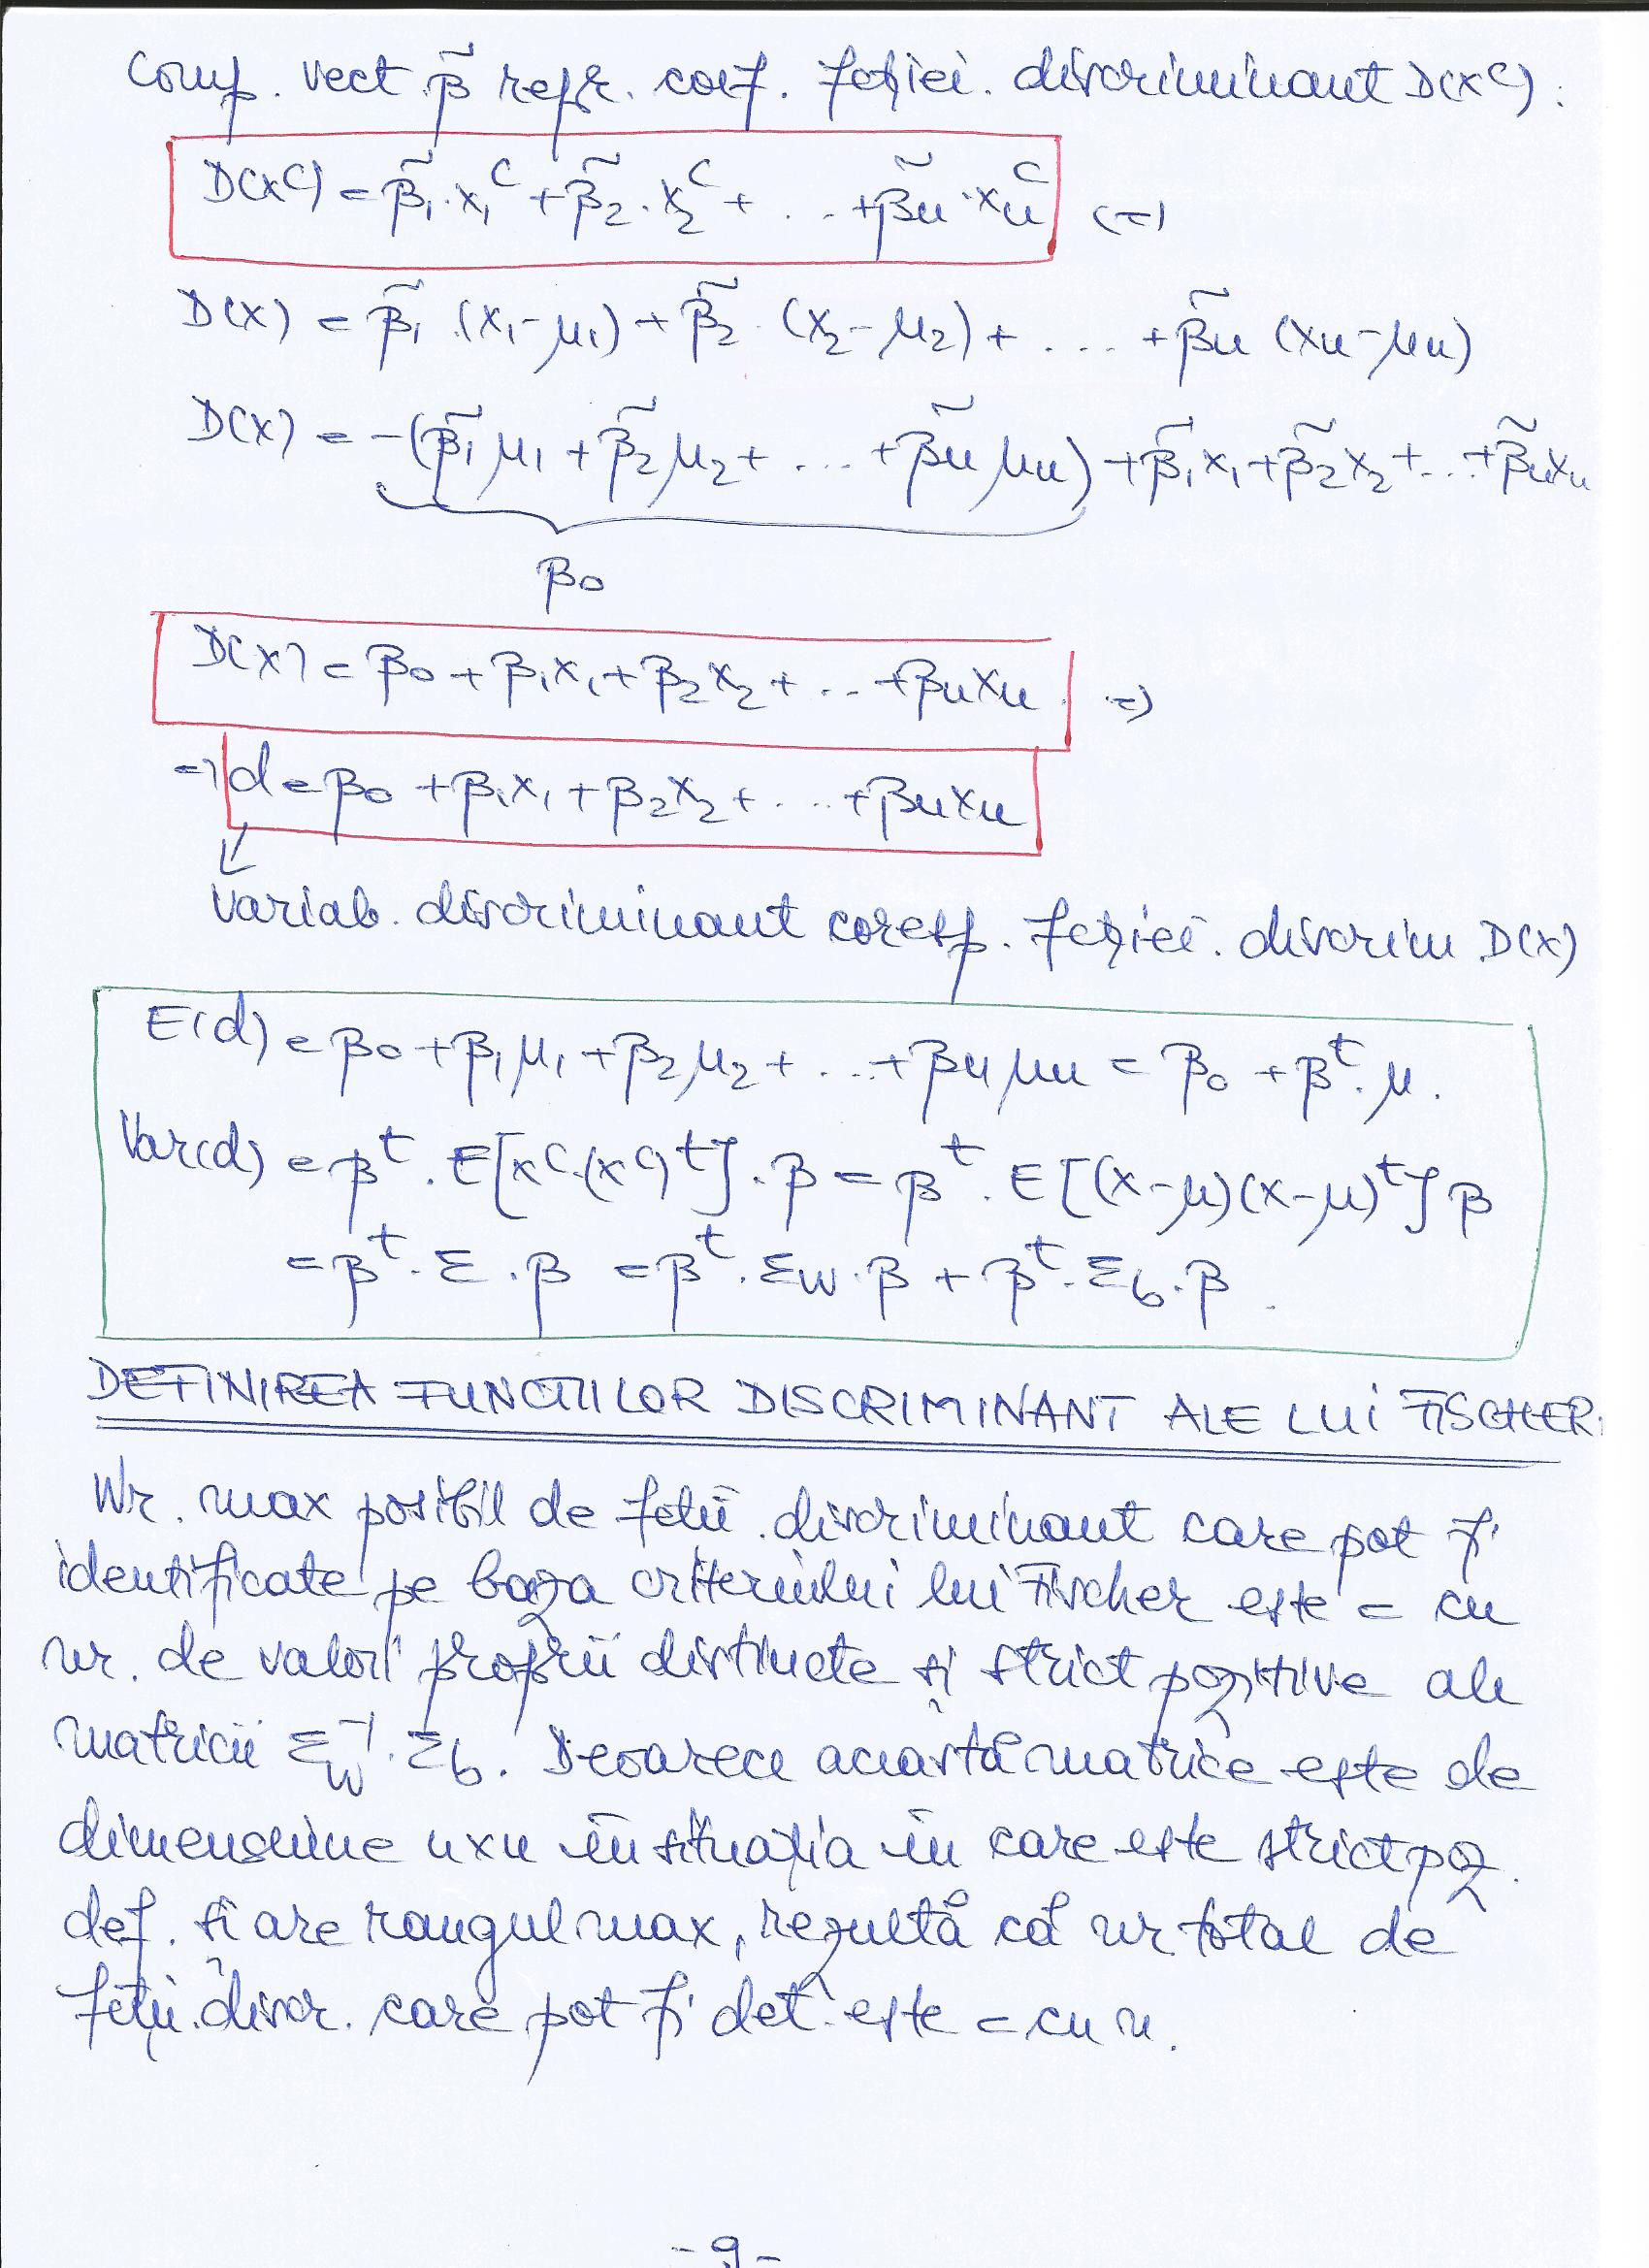 Comp. vect. β̃ repr. coef. fcției. discriminant D(x^c):
D(x^c) = β̃₁·x₁^c + β̃₂·x₂^c + ... + β̃n·xn^c (=)
D(x) = β̃₁·(x₁-μ₁) + β̃₂·(x₂-μ₂) + .... + β̃n (xn-μn)
D(x) = -(β̃₁μ₁ + β̃₂μ₂ + ... + β̃n μn) + β̃₁x₁ + β̃₂x₂ + ... + β̃nxn
β₀
D(x) = β₀ + β₁x₁ + β₂x₂ + ... + βnxn. =)
=) d = β₀ + β₁x₁ + β₂x₂ + ... + βnxn
Variab. discriminant coresp. fcției. discrim D(x)
E(d) = β₀ + β₁μ₁ + β₂μ₂ + ... + βn μn = β₀ + β^t·μ.
Var(d) = β^t·E[x^c·(x^c)^t]·β = β^t·E[(x-μ)(x-μ)^t] β
= β^t·Σ·β = β^t·Σw·β + β^t·Σb·β.
DEFINIREA FUNCTIILOR DISCRIMINANT ALE LUI FISCHER.
Nr. max posibil de fctii. discriminant care pot fi
identificate pe baza criteriului lui Fischer este = cu
nr. de valori proprii distincte și strict pozitive ale
matricii Σw^-1·Σb. Deoarece această matrice este de
dimensiune nxn în situația în care este strict poz.
def. și are rangul max, rezultă că nr total de
fcții. discr. care pot fi det. este = cu n.
-9-